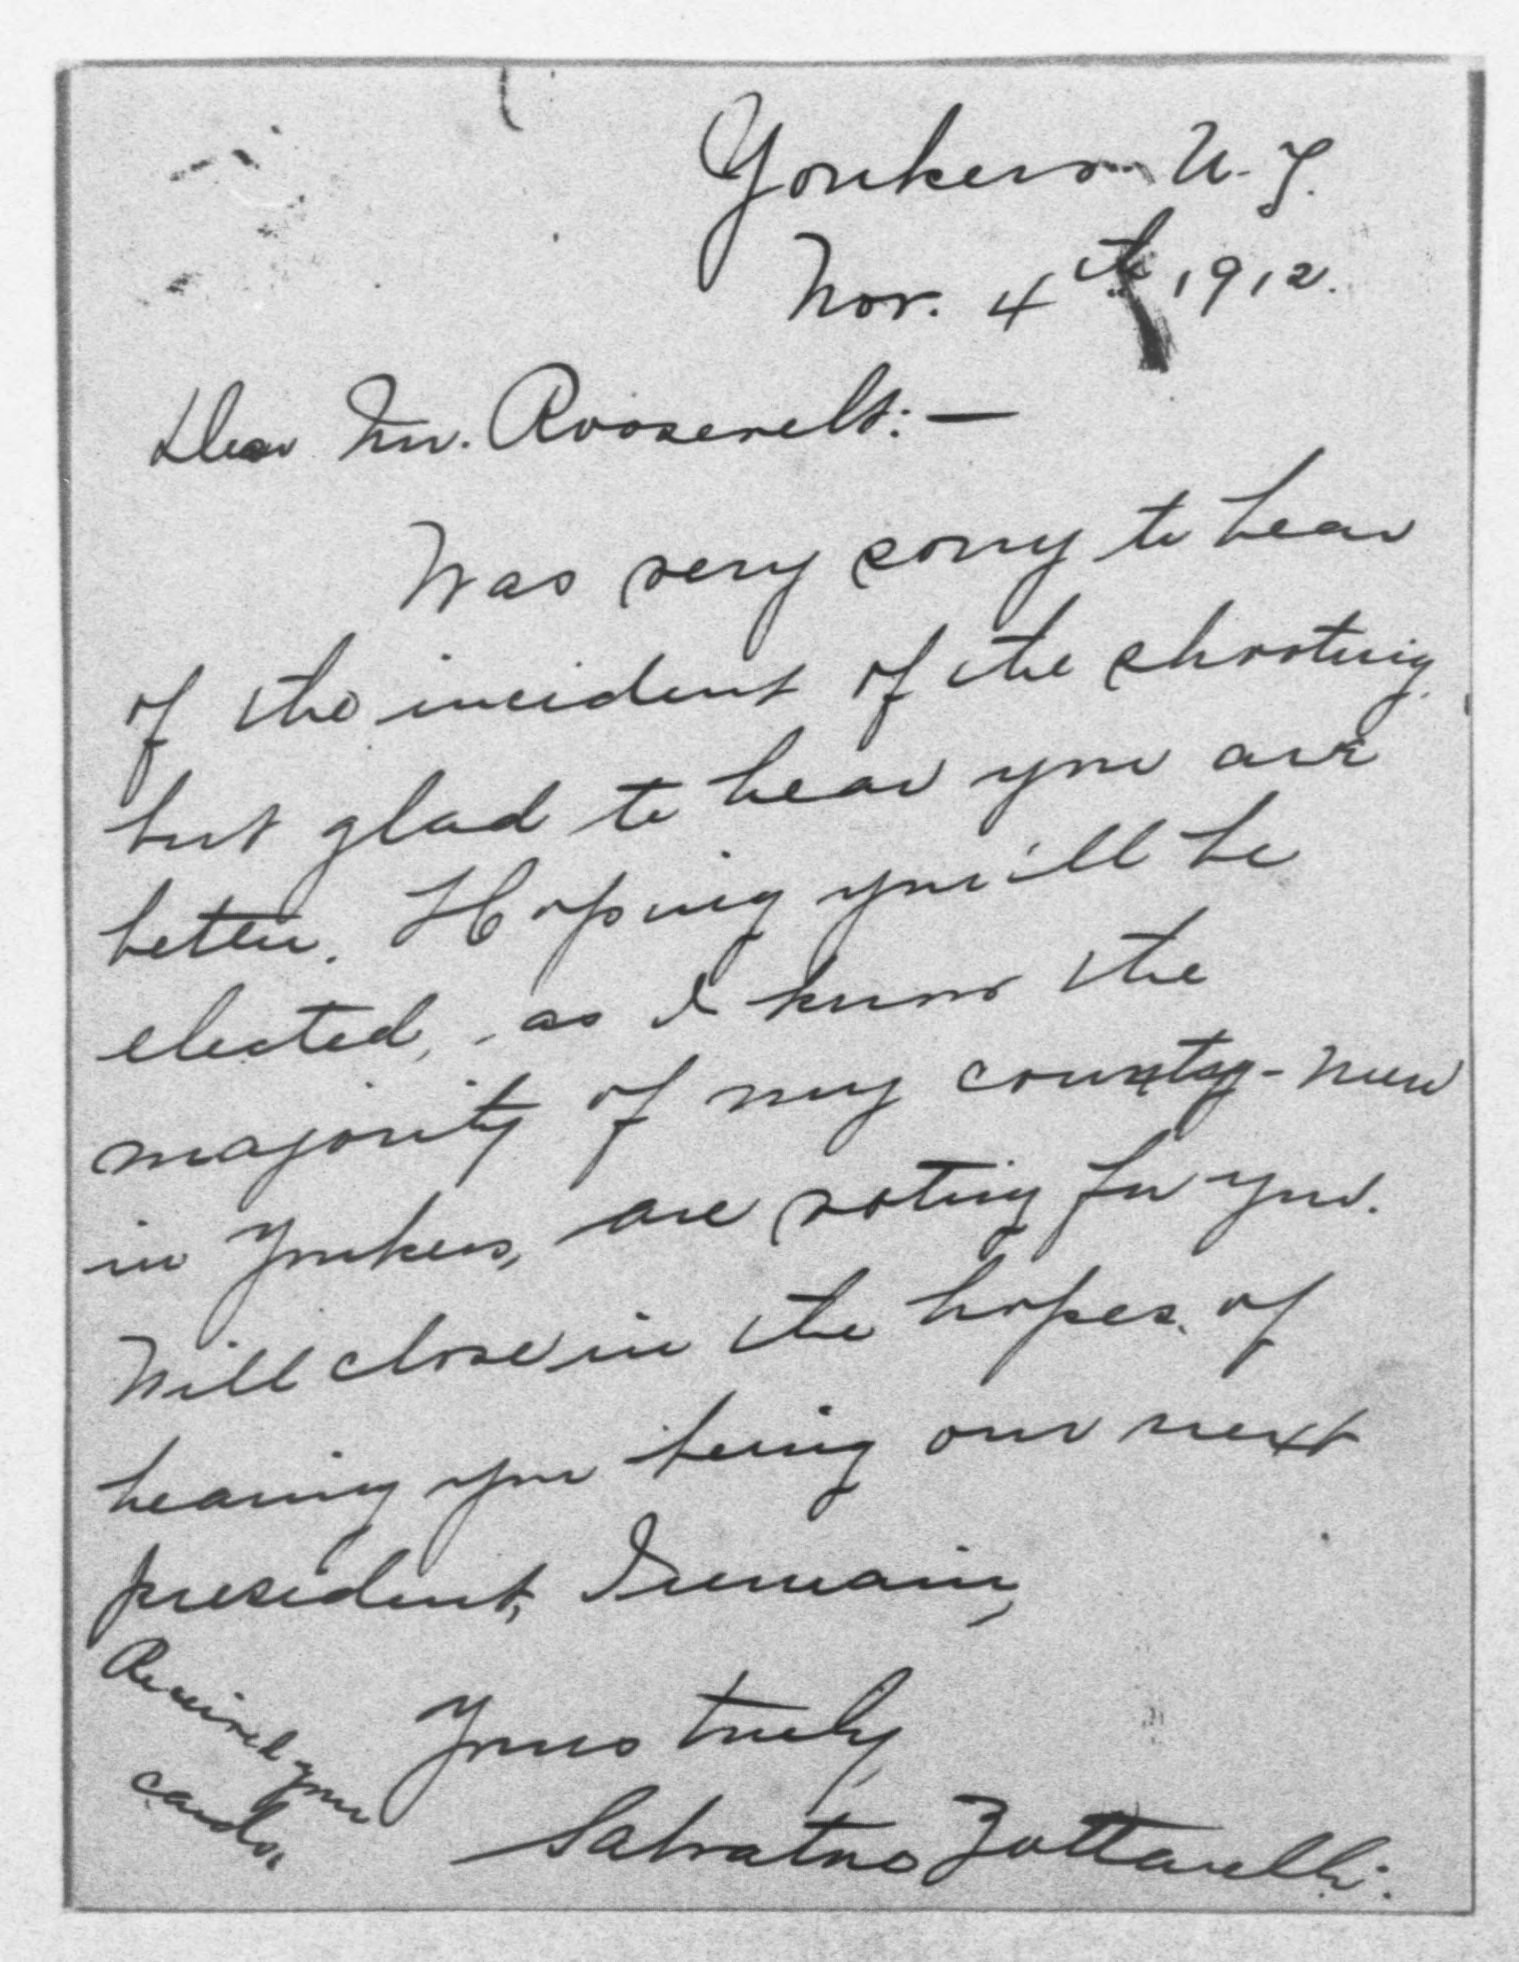 Yonkers N.Y.
Nov. 4th 1912.
Dear Mr. Roosevelt:—
Was very sorry to hear
of the incident of the shooting
but glad to hear you are
better. Hoping you'll be
elected, as I know the
majority of my country-men
in Yonkers, are voting for you.
Will close in the hopes of
hearing you being our next
president, I remain,
Yours truly,
Salvatore Zottarelli.
Received your
cards.